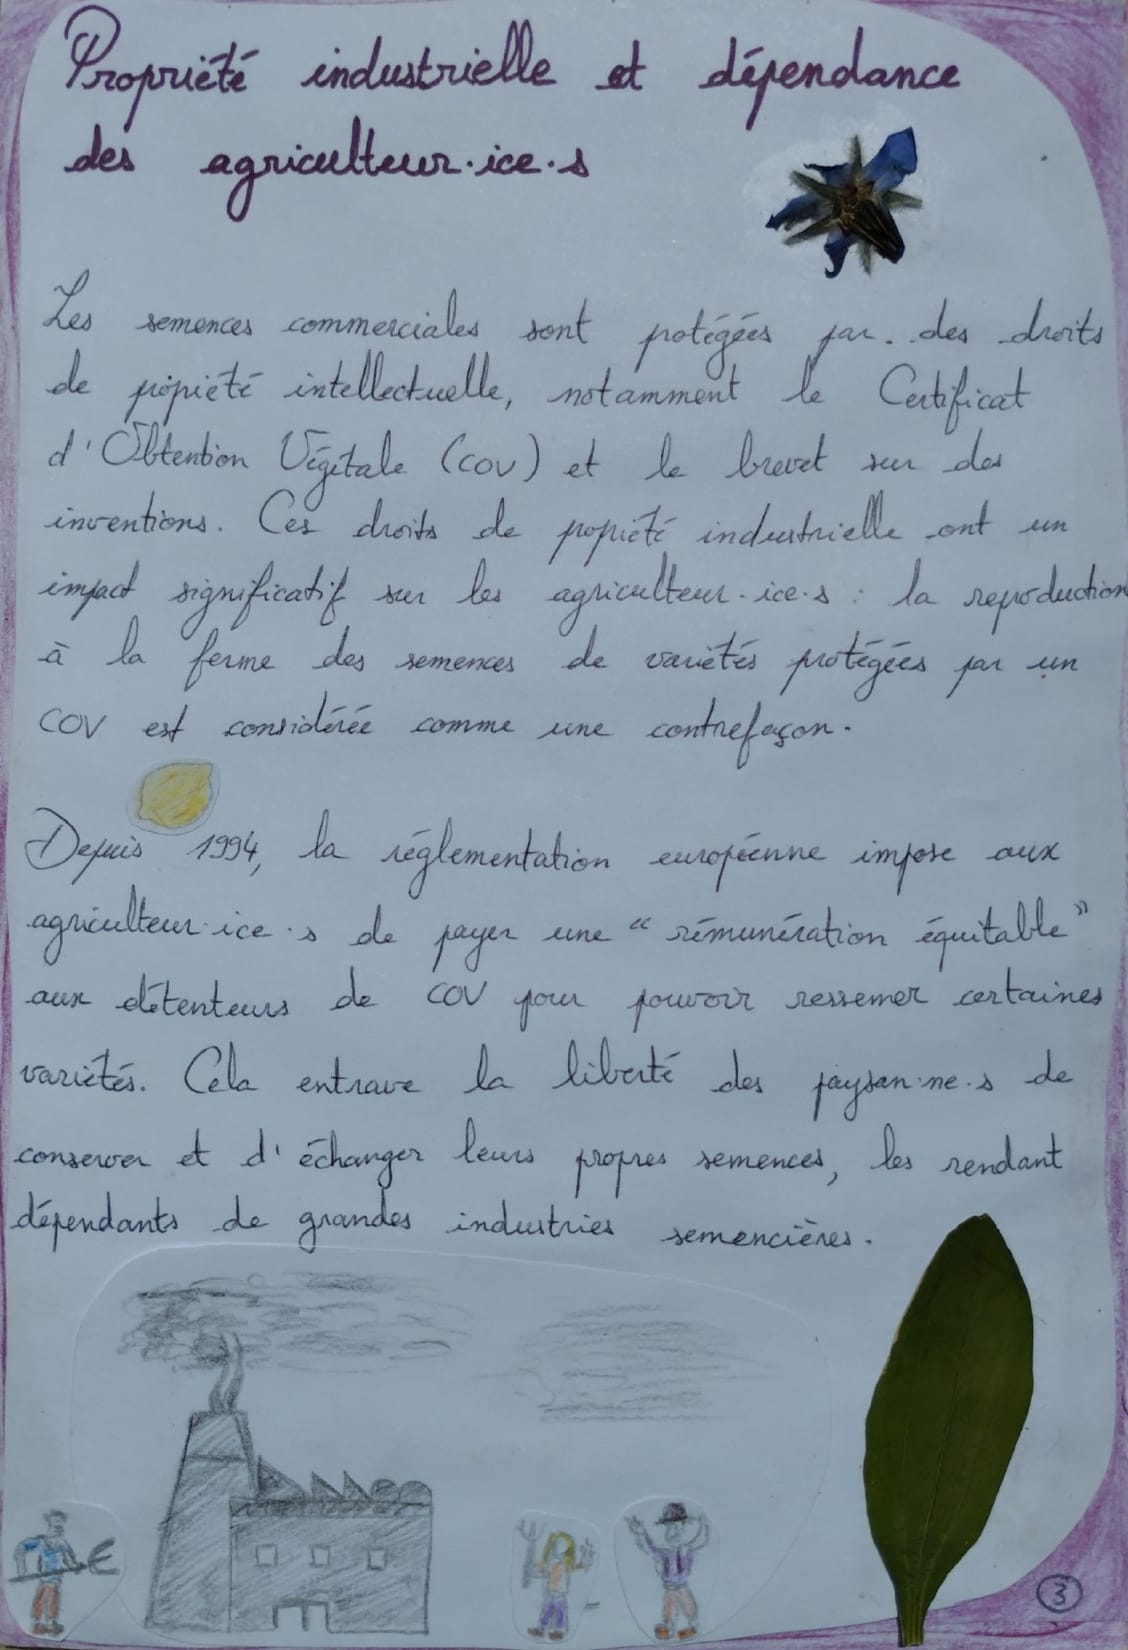 Propriété industrielle et dépendance
des agriculteur·ice·s
Les semences commerciales sont protégées par. des droits
de propiété intellectuelle, notamment le Certificat
d'Obtention Végétale (COV) et le brevet sur des
inventions. Ces droits de propiété industrielle ont un
impact significatif sur les agriculteur·ice·s : la reproduction
à la ferme des semences de variétés protégées par un
COV est considérée comme une contrefaçon.
Depuis 1994, la réglementation européenne impose aux
agriculteur·ice·s de payer une "rémunération équitable"
aux détenteurs de COV pour pouvoir ressemer certaines
variétés. Cela entrave la liberté des paysan·ne·s de
conserver et d'échanger leurs propres semences, les rendant
dépendants de grandes industries semencières.
€
3